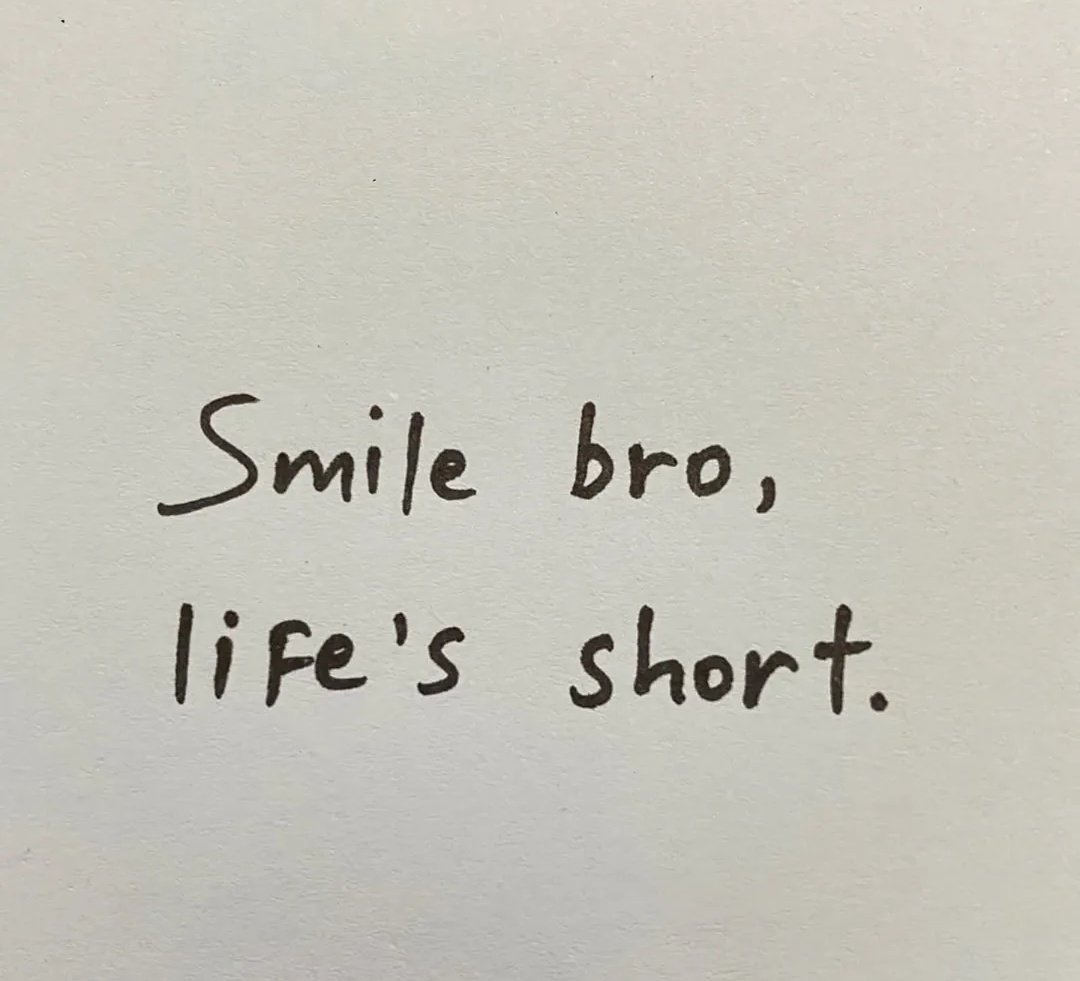 Smile bro,
life's short.